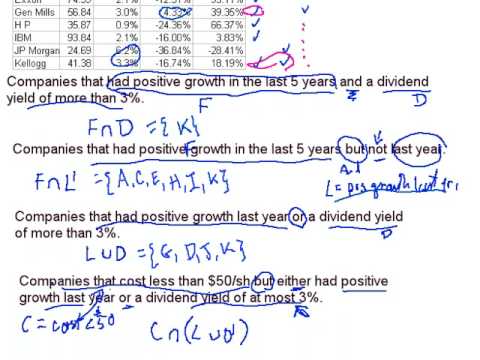 Exxon 74.59 2.1% -12.51% 55.11%
Gen Mills 56.84 3.0% 4.33% 39.35% ✓
H P 35.87 0.9% -24.36% 66.37% ✓
IBM 93.84 2.1% -16.00% 3.83% ✓
JP Morgan 24.69 6.2% -36.84% -28.41% ✓
Kellogg 41.38 3.3% -16.74% 18.19% ✓ ✓
Companies that had positive growth in the last 5 years and a dividend
yield of more than 3%.
F D
F∩D = {K}
Companies that had positive growth in the last 5 years but not last year.
F And
L = pos growth last yr.
F∩L' = {A, C, E, H, I, K}
Companies that had positive growth last year or a dividend yield
of more than 3%.
D
L∪D = {G, D, J, K}
Companies that cost less than $50/sh but either had positive
growth last year or a dividend yield of at most 3%.
C = cost < $50
C∩(L∪D')